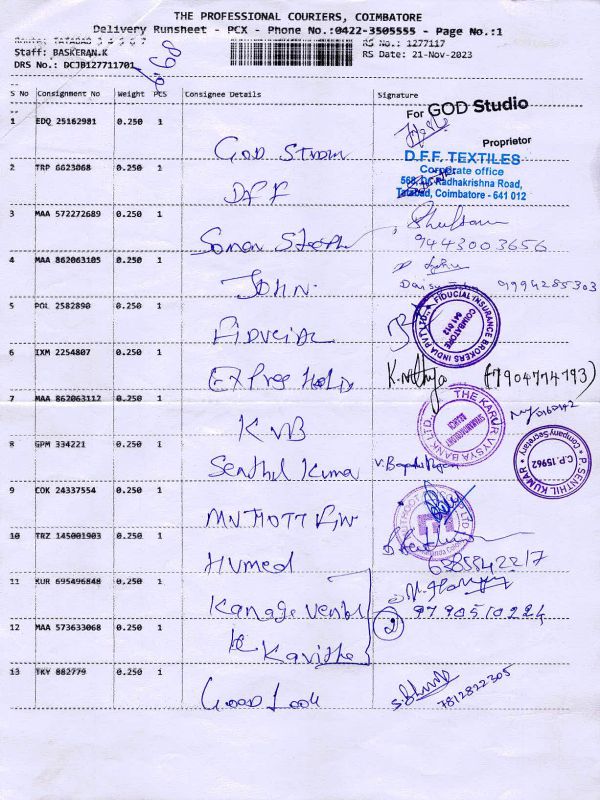 THE PROFESSIONAL COURIERS, COIMBATORE
Delivery Runsheet - PCX - Phone No.:0422-3505555 - Page No.:1
Route: TATABAD
Staff: BASKERAN.K
DRS No.: DCJB127711701
RS No.: 1277117
RS Date: 21-Nov-2023
S No Consignment No Weight PCS Consignee Details Signature
1 EDQ 25162981 0.250 1
For GOD Studio
Proprietor
2 TRP 6623068 0.250 1 DFF
D.F.F. TEXTILES
Corporate office
568, Dr. Radhakrishna Road,
Tatabad, Coimbatore - 641 012
3 MAA 572272689 0.250 1
9443003656
4 MAA 862063105 0.250 1 JOHN.
9994285303
5 POL 2582890 0.250 1
FIDUCIAL INSURANCE BROKERS INDIA PVT LTD.,
COIMBATORE
641 012
6 IXM 2254807 0.250 1
K. nithya (7904774793)
7 MAA 862063112 0.250 1 KVB
THE KARUR VYSYA BANK LTD.,
8 GPM 334221 0.250 1 Senthil Kumar
P. SENTHIL KUMAR
C.P.15962
Company Secretary
9 COK 24337554 0.250 1
10 TRZ 145001903 0.250 1 Humed
11 KUR 695496848 0.250 1
9790510224
2
12 MAA 573633068 0.250 1 Kavitha
13 TKY 882779 0.250 1 Good Look
7812822305